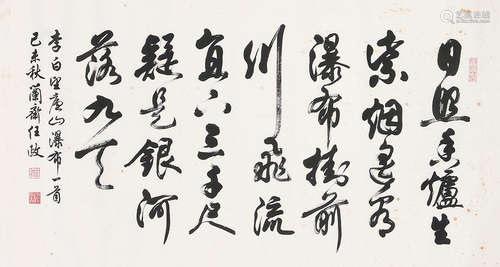 日照香爐生
紫烟遥看
瀑布掛前
川飛流
直下三千尺
疑是銀河
落九天
李白望廬山瀑布一首
己未秋蘭齋任政